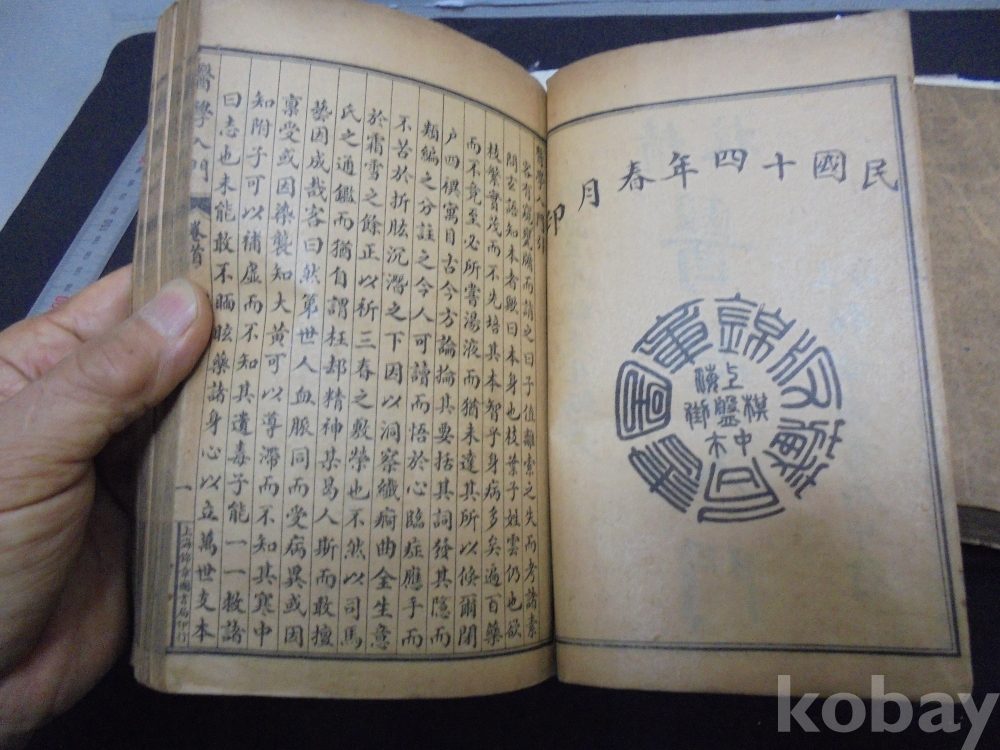 民國十四年春月印
錦章圖書局藏版
上海棋盤街中市
醫學入門引
客有窺甕牖而請之曰子值離索之失而考諸素
問玄語知本者歟曰本身也枝葉子姓雲仍也欲
枝繁實茂而不先培其本智乎身病多矣遍百藥
而不竟至必所嘗湯液而猶未達其所以倏爾閉
户四禩寓目古今方論掄其要括其詞發其隱而
類編之分註之令人可讀而悟於心臨症應手而
不苦於折肱沉潛之下因以洞察纖痾曲全生意
於霜雪之餘正以祈三春之敷榮也不然以司馬
氏之通鑑而猶自謂枉却精神某曷人斯而敢擅
藝因成哉客曰然第世人血脈同而受病異或因
稟受或因染襲知大黄可以導滯而不知其寒中
知附子可以補虛而不知其遺毒子能一一救諸
曰志也未能敢不瞑眩藥諸身心以立萬世支本
醫學入門 卷首 一 上海錦章圖書局印行
kobay